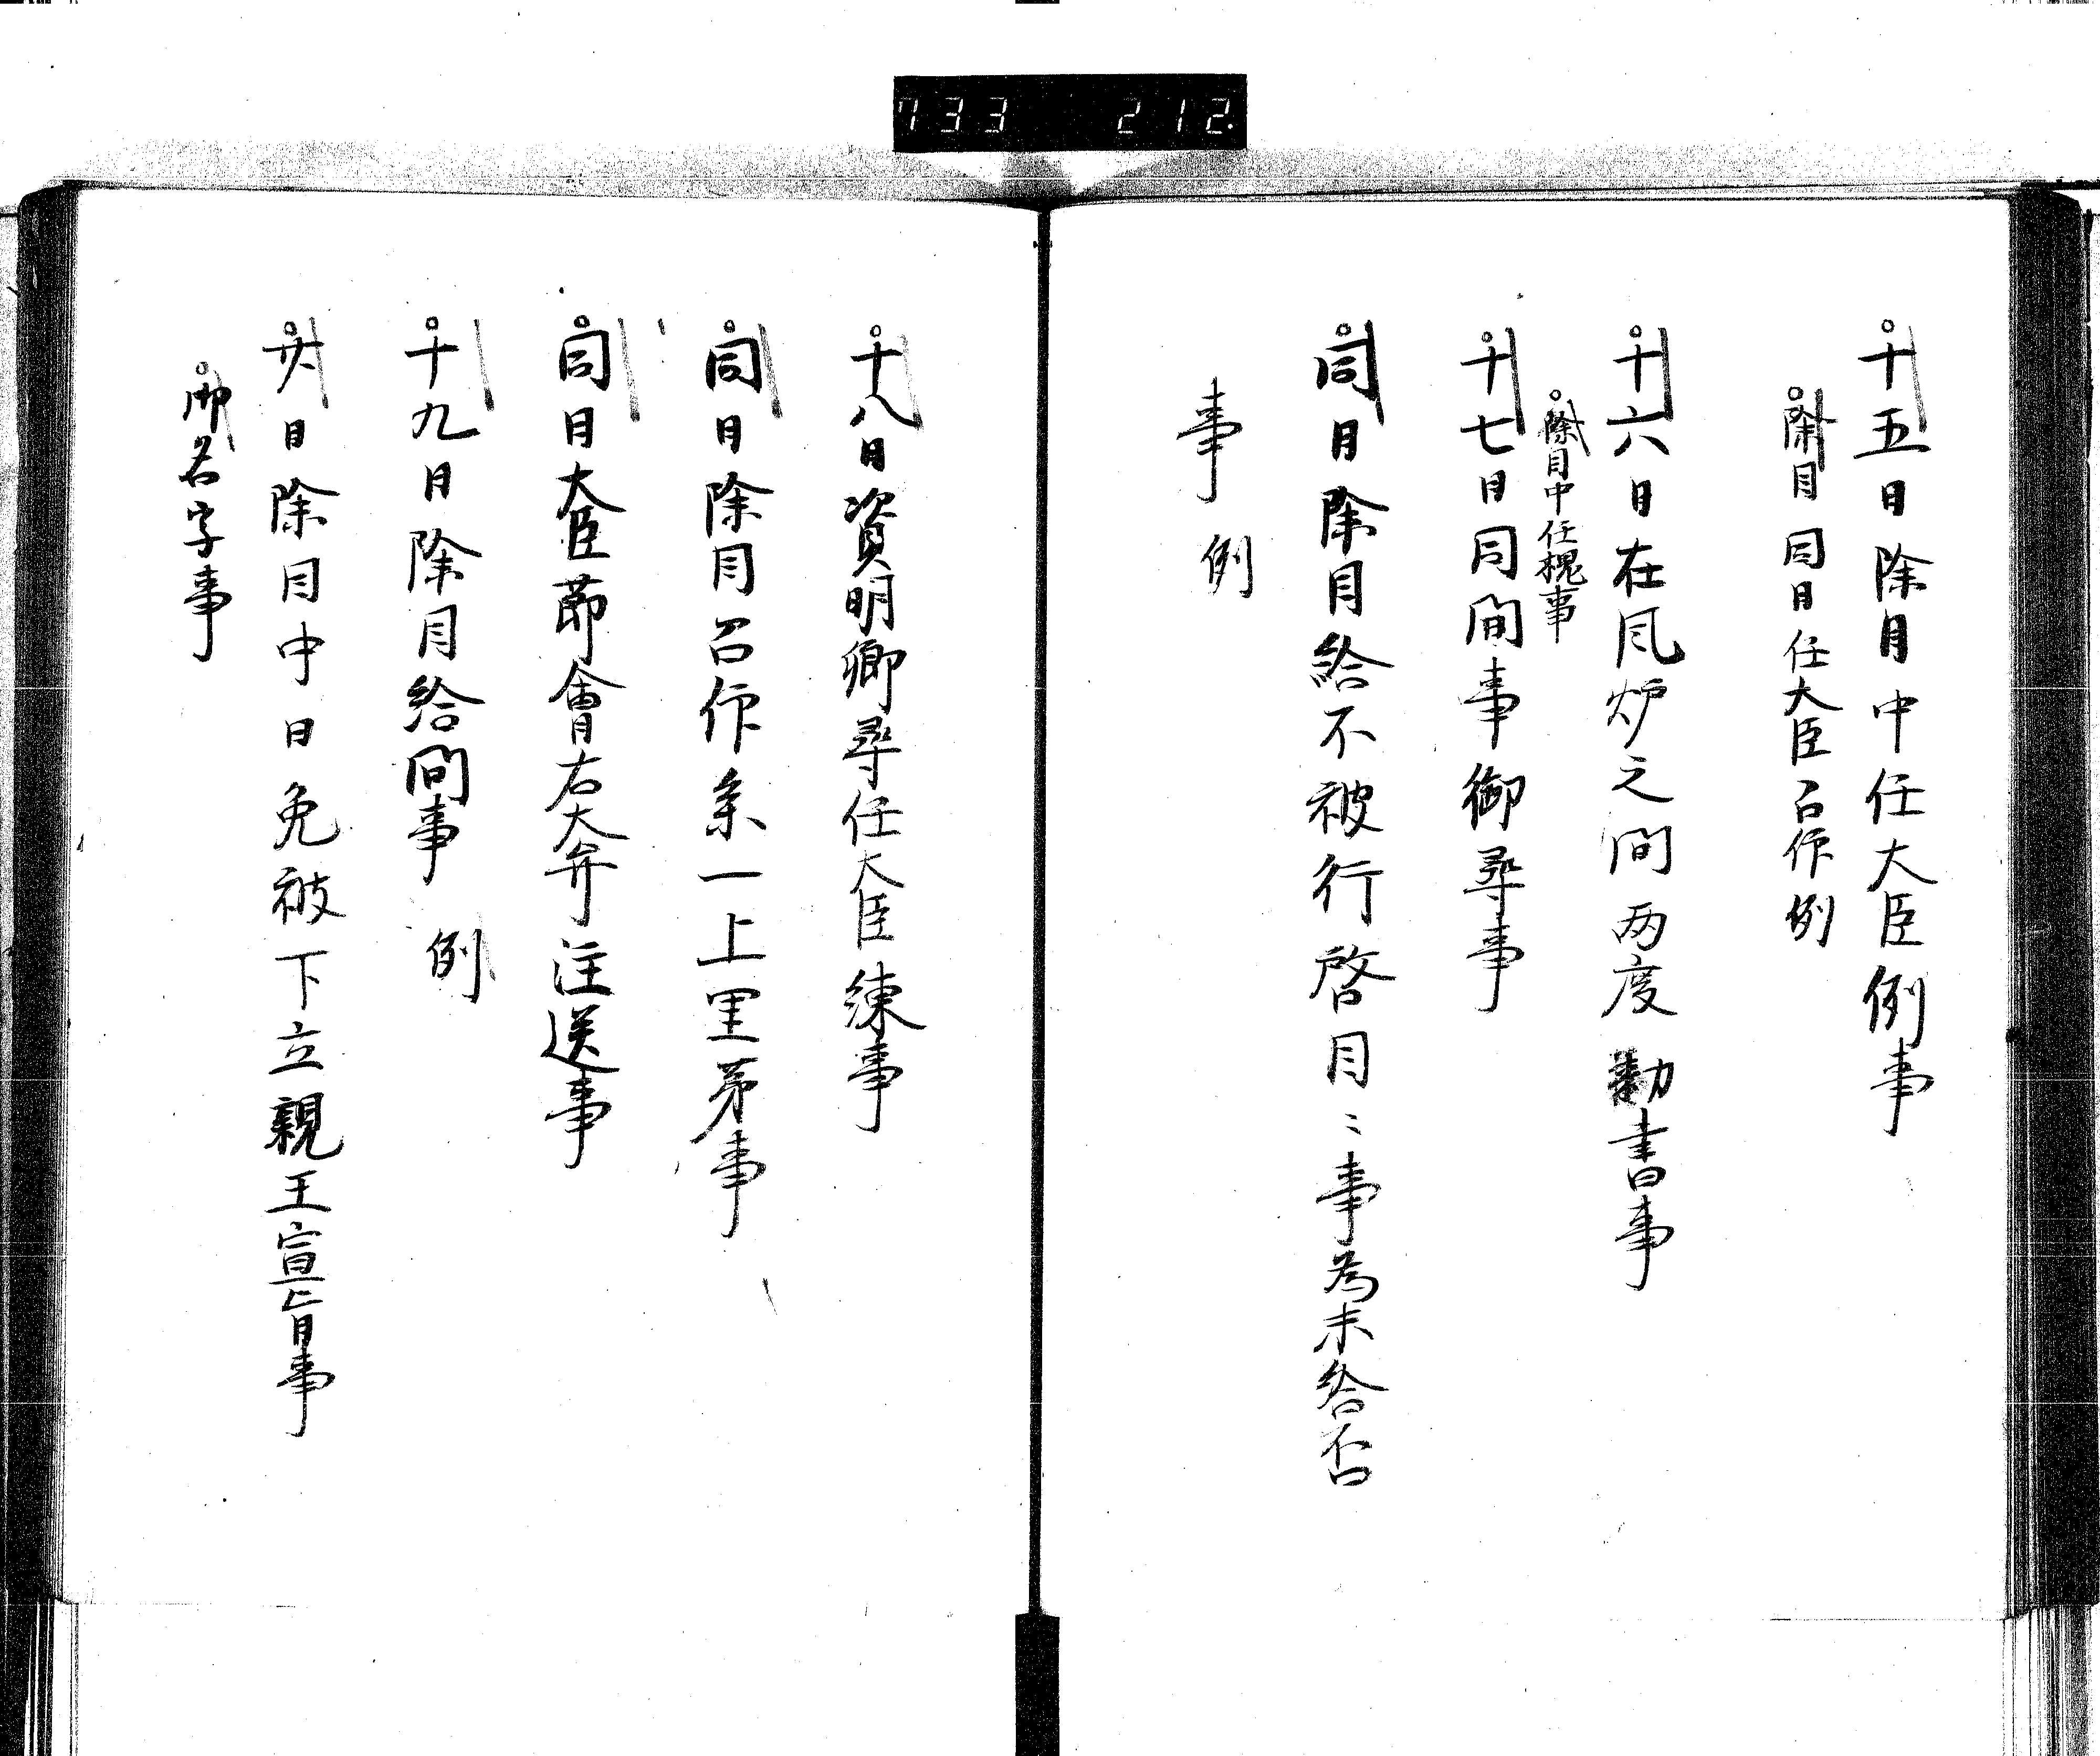 733 212
十五日除目中任大臣例事
除目同日任大臣召仰例
十六日在風炉之間両度勘書事
除目中任槐事
十七日同間事御尋事
同日除目給不被行啓目〻事為未給否
事 例
十八日資明卿尋任大臣練事
同日除目召仰参一上里第事
同日大臣節會右大弁注送事
十九日除目給間事 例
廿八日除目中日免被下立親王宣旨事
御名字事